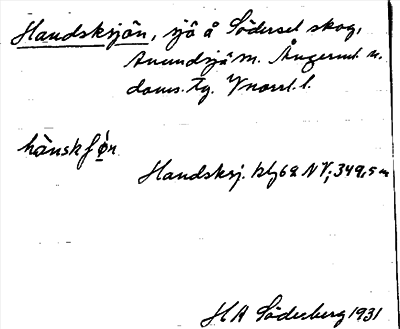 Handsksjön, sjö å Södersel skog,
Anundsjö sn. Ångerml. n.
doms. tg. Vnorrl. l.
hånskʃø̀n
Handsksj. kbl 62 NV; 349,5 m
H A Söderberg 1931